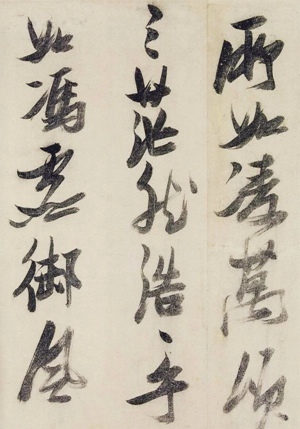 所如凌萬頃
之茫然浩々乎
如馮虛御風